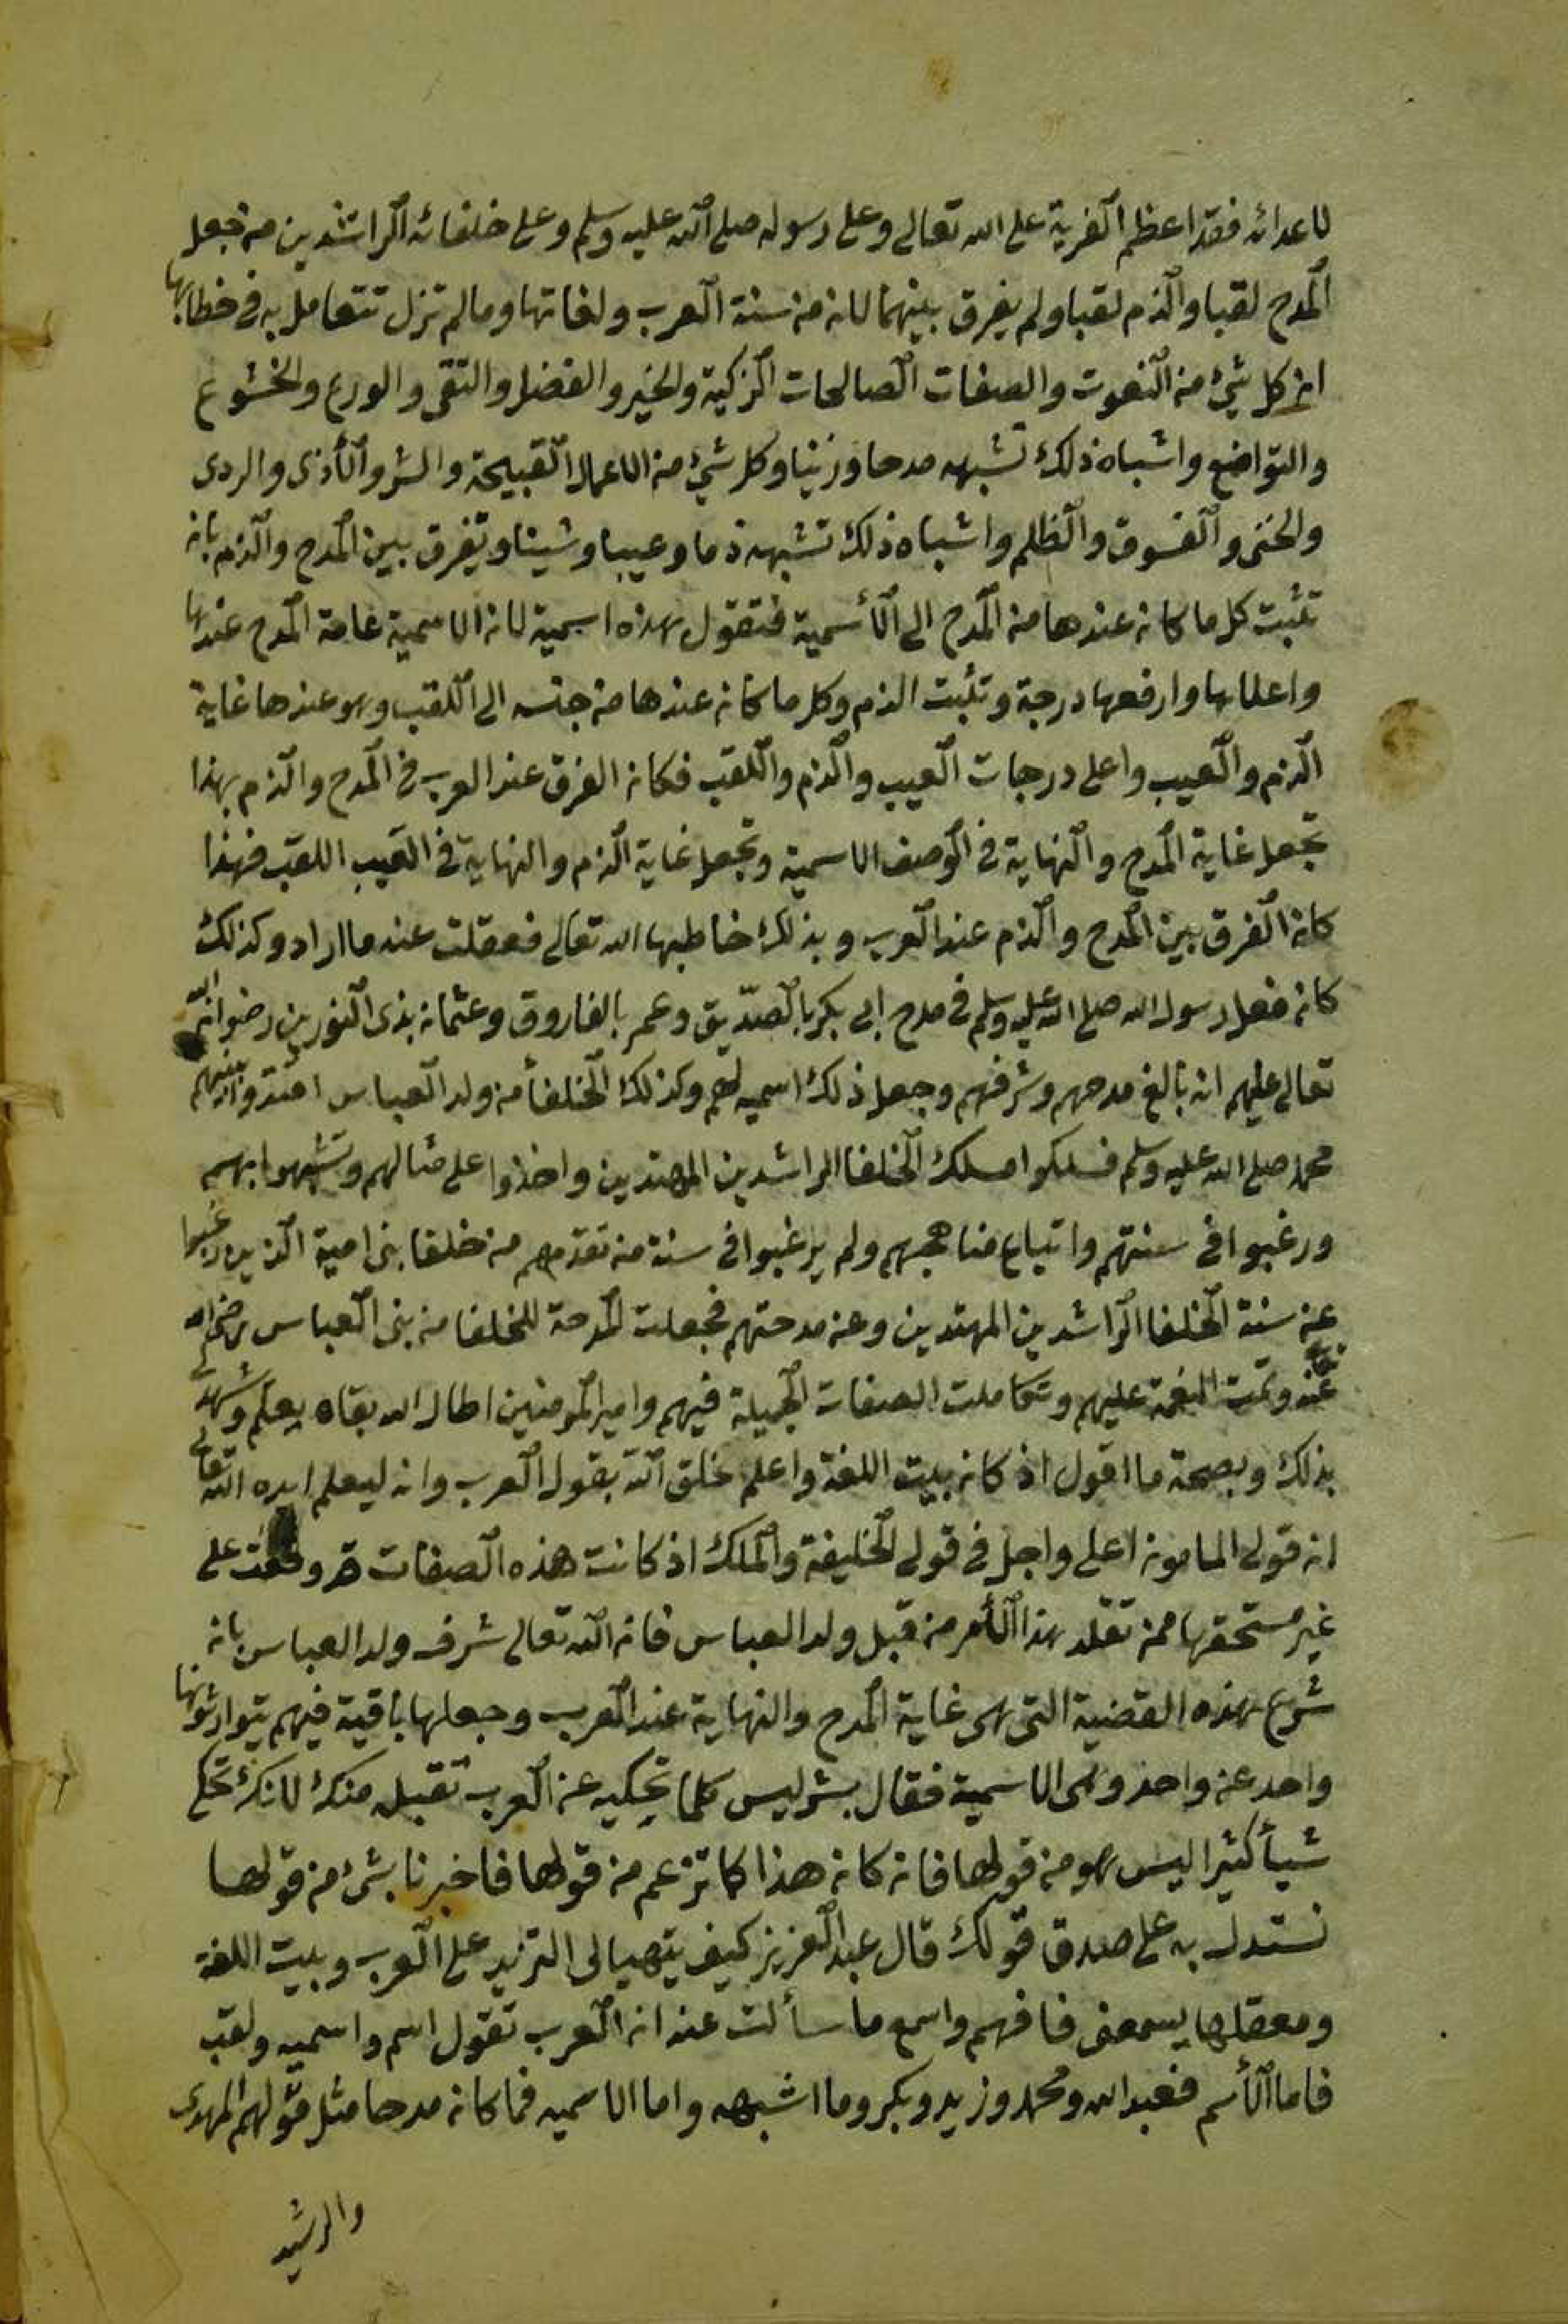 لاعدائه فقد اعظم الفرية على الله تعالى وعلى رسوله صلى الله عليه وسلم وعلى خلفائه الراشدين من جعل
المدح لقبا والذم لقبا ولم يفرق بينهما لانه من سنة العرب ولغاتها ومالم تزل تتعامل به في خطابها
ان كل شيء من النعوت والصفات الصالحات الزكية والخير والفضل والتقى والورع والخشوع
والتواضع واشباه ذلك تشبهه مدحا وزينا وكل شيء من الاعمال القبيحة والشر والأذى والردى
والخنى والفسوق والظلم واشباه ذلك تشبهه ذما وعيبا وشينا وتفرق بين المدح والذم بانه
تثبت كل ما كان عندها من المدح الى الأسمية فتقول بهذه اسمية لانه الاسمية عامة المدح عندها
واعلاها وارفعها درجة وتثبت الذم وكل ما كان عندها من جنسه الى اللقب وهو عندها غاية
الذم والعيب واعلى درجات العيب والذم واللقب فكان الفرق عند العرب في المدح والذم بهذا
تجعل غاية المدح والنهاية في الوصف الاسمية وتجعل غاية الذم والنهاية في العيب اللقب فهذا
كان الفرق بين المدح والذم عند العرب وبذلك خاطبها الله تعالى فعقلت عنه ما اراد وكذلك
كان فعل رسول الله صلى الله عليه وسلم في مدح ابى بكر بالصديق وعمر بالفاروق وعثمان بذى النورين رضوان الله
تعالى عليهم انه بالغ مدحهم وشرفهم وجعل ذلك اسميه لهم وكذلك الخلفأ من ولد العباس اقتدوا بنبيهم
محمد صلى الله عليه وسلم فسلكوا مسلك الخلفا الراشدين المهتدين واخذوا على مثالهم وتشبهوا بهم
ورغبوا في سنتهم واتباع مناهجهم ولم يرغبوا في سنة من تقدمهم من خلفا بنى امية الذين رغبوا
عن سنة الخلفا الراشدين المهتدين وعن مدحتهم فجعلت المدحة للخلفا من بنى العباس رضى الله
عنه وتمت النعمة عليهم وتكاملت الصفات الجميلة فيهم وامير المومنين اطال الله بقاه يعلم وشهد لى
بذلك وبصحة ما اقول اذ كان بيت اللغة واعلم خلق الله بقول العرب وانه ليعلم ايده الله تعالى
انه قولى المامون اعلى واجل في قولى الخليفة والملك اذ كانت هذه الصفات قد وقعت على
غير مستحقها ممن تقلد بهذا الأمر من قبل ولد العباس فانه الله تعالى شرف ولد العباس بانه
شرع بهذه القضية التى هى غاية المدح والنهاية عند العرب وجعلها باقية فيهم يتوارثونها
واحد عن واحد وهى الاسمية فقال بشر ليس كلما تحكيه عن العرب تقبله منك لانك تحكى
شيأ كثيرا ليس هو من قولها فانه كان هذا كما تزعم من قولها فاخبرنا بشئ من قولها
نستدل به على صدق قولك قال عبد العزيز كيف يتهيا لى التزيد على العرب وبيت اللغة
ومعقلها يسمعنى فافهم واسمع ما سألت عنه ان العرب تقول اسم واسميه ولقب
فاما الأسم فعبد الله ومحمد وزيد وبكر وما اشبهه واما الاسميه فما كان مدحا مثل قولهم المهدى
والرشيد